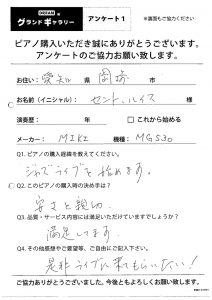 DREAM
グランドギャラリー アンケート1 ※裏面もご協力ください
ピアノ購入いただき誠にありがとうございます。
アンケートのご協力お願い致します。
お住い: 愛知 県 岡崎 市
お名前(イニシャル): セントルイス 様
演奏歴: 年 □これから始める
メーカー: MIKI 機種: MG530
Q1. ピアノの購入経緯を教えてください。
ジャズライブを始めます。
Q2. このピアノの購入時の決め手は?
安さと親切
Q3. 品質・サービス内容には満足いただけていますでしょうか?
満足してます。
Q4. その他感想やご要望等、ご自由にご記入下さい。
是非ライブに来てもらいたい!
ご協力ありがとうございました。今後ともよろしくお願い致します。